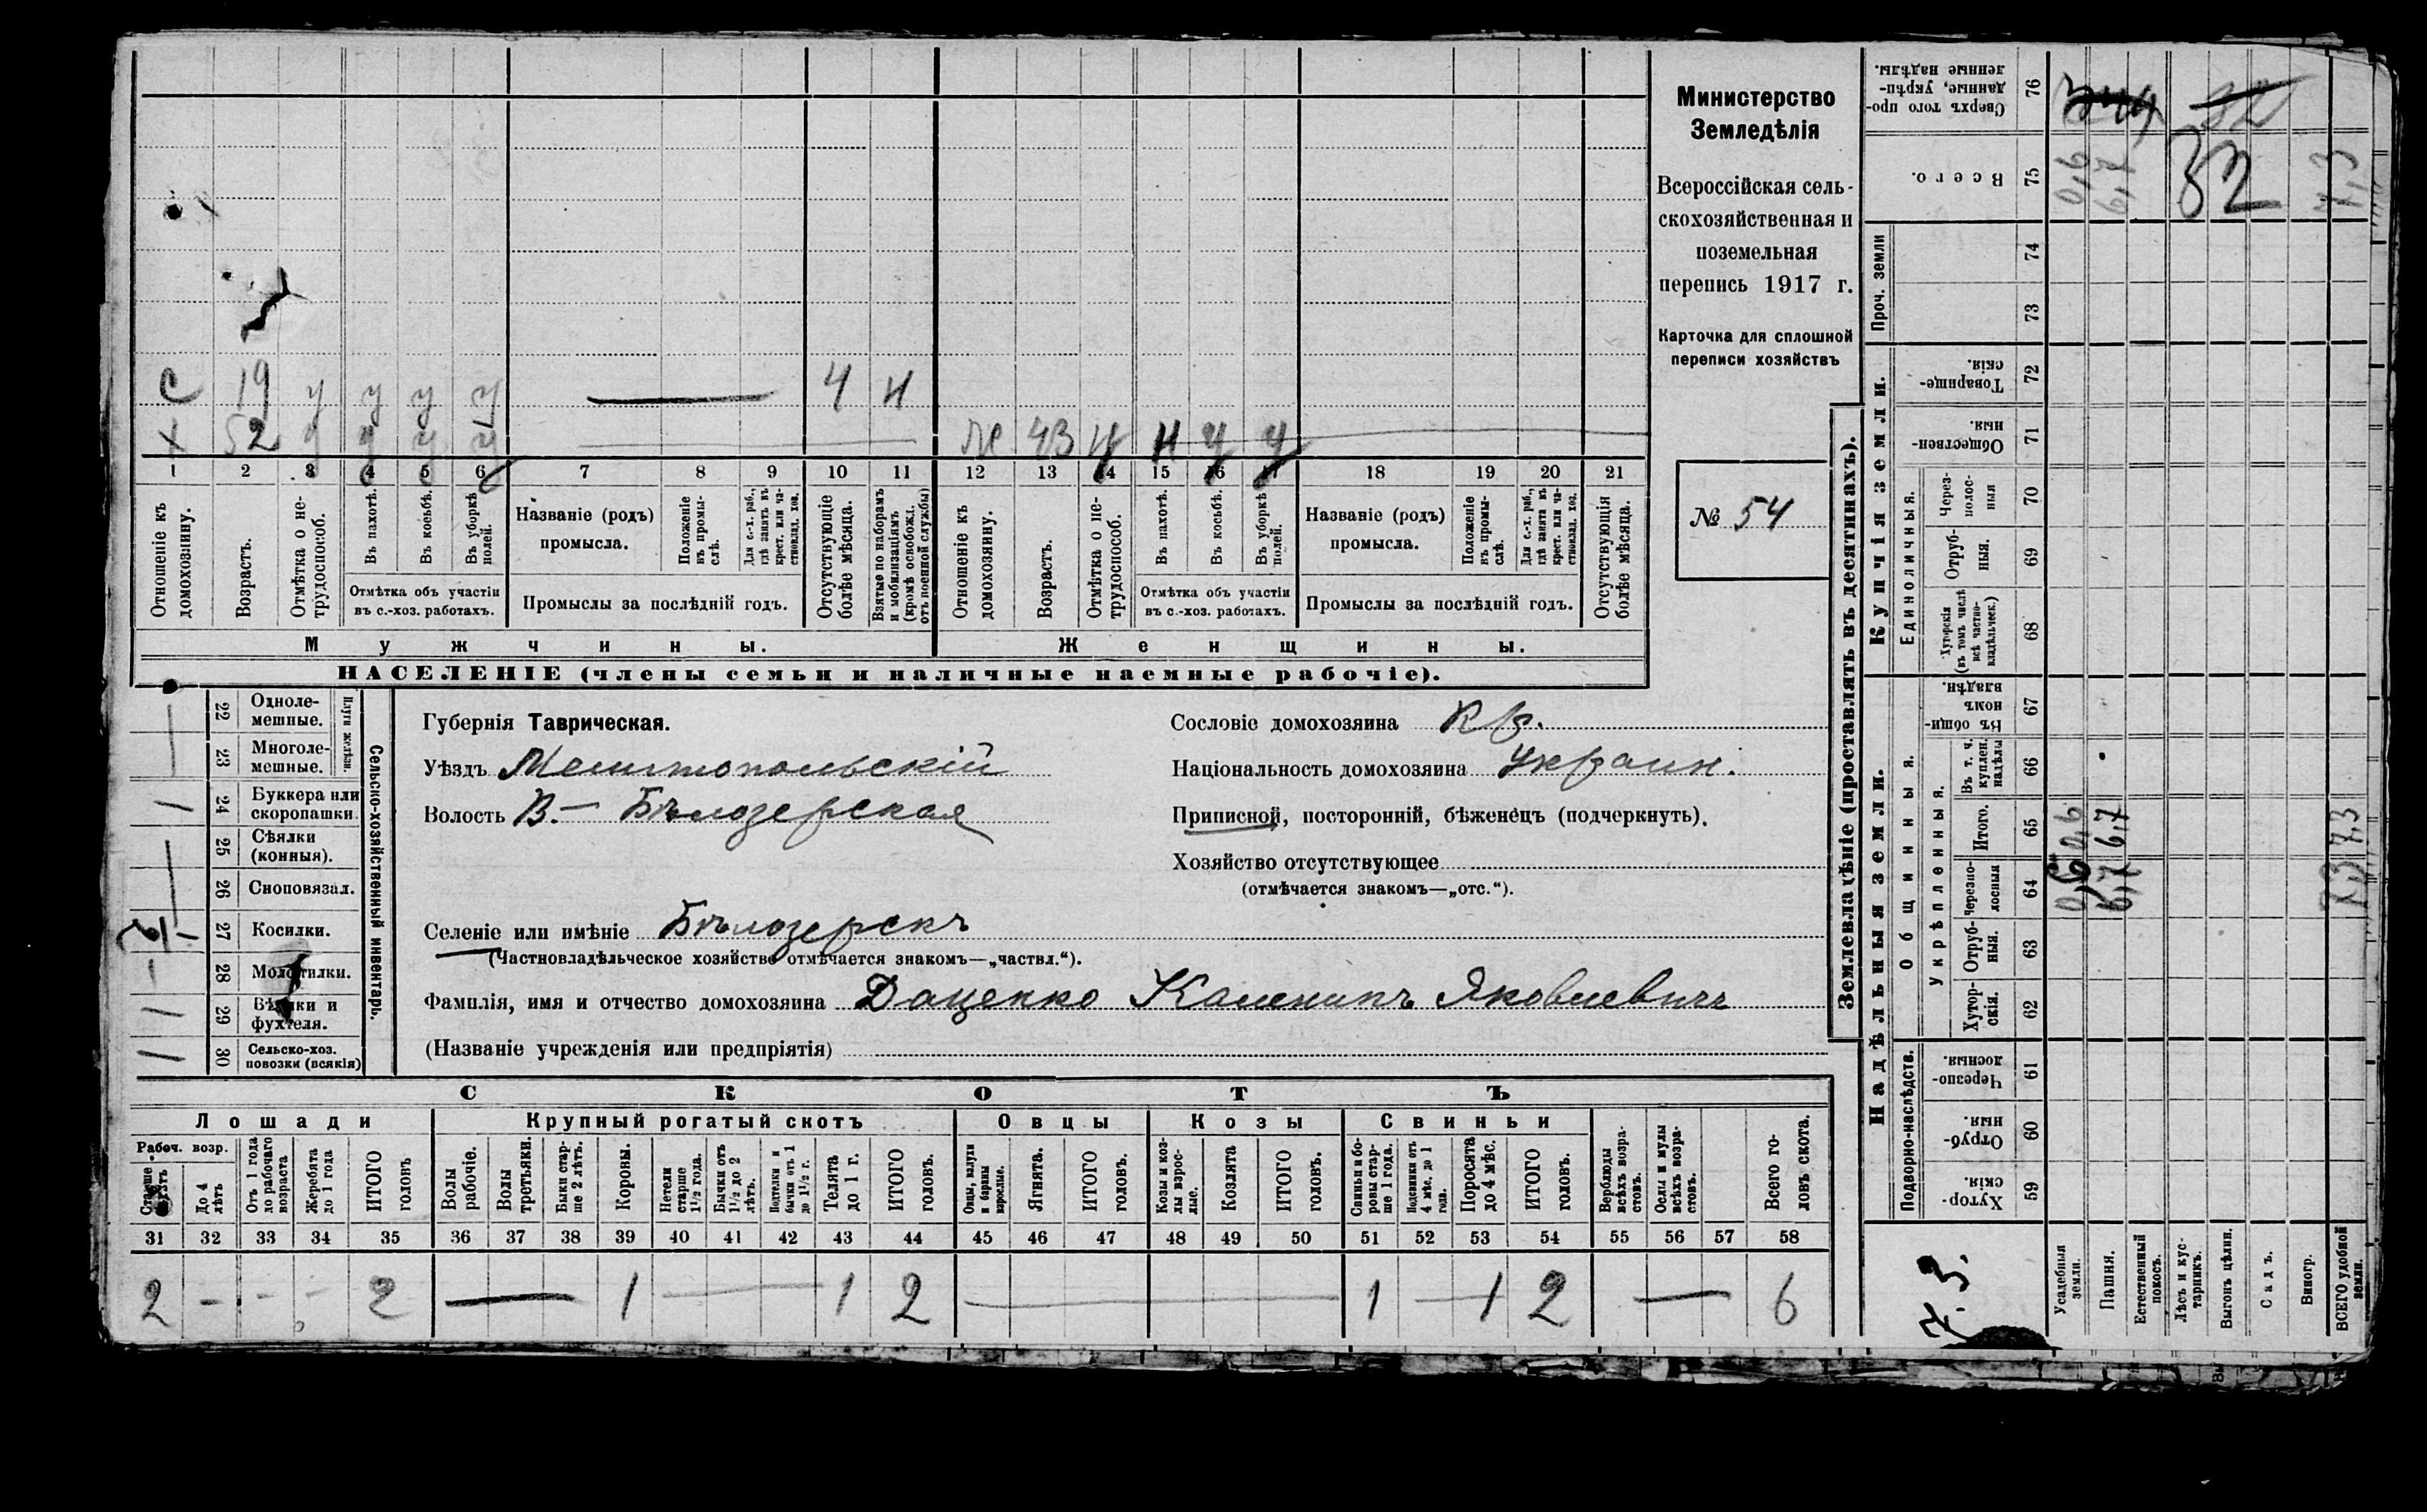 С 19 у у у у 4 н
х 52 у у у у ж 43 у н у у
1 2 3 4 5 6 7 8 9 10 11 12 13 14 15 16 17 18 19 20 21
Отношеніе къ домохозяину.
Возрастъ.
Отмѣтка о нетрудоспособ.
Въ пахотѣ.
Въ косьбѣ.
Въ уборкѣ полей.
Отмѣтка объ участіи
въ с.-хоз. работахъ.
Названіе (родъ)
промысла.
Положеніе въ промыслѣ.
Для с.-х. раб., гдѣ занятъ въ крест. или частновлад. хоз.
Промыслы за послѣдній годъ.
Отсутствующіе болѣе мѣсяца.
Взятые по наборамъ и мобилизаціямъ (кромѣ освобожд. отъ военной службы)
Отношеніе къ домохозяину.
Возрастъ.
Отмѣтка о нетрудоспособ.
Въ пахотѣ.
Въ косьбѣ.
Въ уборкѣ полей.
Отмѣтка объ участіи
въ с.-хоз. работахъ.
Названіе (родъ)
промысла.
Положеніе въ промыслѣ.
Для с.-х. раб., гдѣ занята въ крест. или частновлад. хоз.
Промыслы за послѣдній годъ.
Отсутствующія болѣе мѣсяца.
Мужчины. Женщины.
НАСЕЛЕНІЕ (члены семьи и наличные наемные рабочіе).
Министерство
Земледѣлія
Всероссійская сель-
скохозяйственная и
поземельная
перепись 1917 г.
Карточка для сплошной
переписи хозяйствъ
№ 54
22 Однолемешные.
23 Многолемешные.
Плуги желѣзн.
24 Буккера или скоропашки.
25 Сѣялки (конныя).
26 Сноповязал.
27 Косилки.
28 Молотилки.
29 Вѣялки и фухтеля.
30 Сельско-хоз. повозки (всякія)
Сельско-хозяйственный инвентарь.
Губернія Таврическая.
Сословіе домохозяина Кр.
Уѣздъ Мелитопольскій
Національность домохозяина Украин.
Волость В.– Бѣлозерская
Приписной, посторонній, бѣженецъ (подчеркнуть).
Хозяйство отсутствующее
(отмѣчается знакомъ—„отс.“).
Селеніе или имѣніе Бѣлозерскъ
(Частновладѣльческое хозяйство отмѣчается знакомъ—„частвл.“).
Фамилія, имя и отчество домохозяина Даценко Каленикъ Яковлевичъ
(Названіе учрежденія или предпріятія)
СКОТЪ
Лошади Крупный рогатый скотъ Овцы Козы Свиньи
Рабоч. возр.
Старше лѣтъ
До 4 лѣтъ
Отъ 1 года до рабочаго возраста
Жеребята до 1 года
ИТОГО головъ
Волы рабочіе.
Волы третьяки.
Быки старше 2 лѣтъ.
Коровы.
Нетели старше 1½ года.
Бычки отъ 1½ до 2 лѣтъ.
Подтелки и бычки отъ 1 до 1½ г.
Телята до 1 г.
ИТОГО головъ.
Овцы, валухи и бараны взрослые.
Ягнята.
ИТОГО головъ.
Козы и козлы взрослые.
Козлята
ИТОГО головъ.
Свиньи и боровы старше 1 года.
Подсвинки отъ 4 мѣс. до 1 года.
Поросята до 4 мѣс.
ИТОГО головъ.
Верблюды всѣхъ возрастовъ.
Ослы и мулы всѣхъ возрастовъ.
Всего головъ скота.
31 32 33 34 35 36 37 38 39 40 41 42 43 44 45 46 47 48 49 50 51 52 53 54 55 56 57 58
2 – – – 2 — 1 — 1 2 — 1 — 1 2 — 6
Землевладѣніе (проставлять въ десятинахъ).
Надѣльныя земли. Купчія земли.
Проч. земли
Подворно-наслѣдств.
Общинныя.
Укрѣпленныя.
Единоличныя.
Сверхъ того проданные, укрѣпленные надѣлы. 76
Всего. 75 0,6 6,7 32 7,3
74
73
Товарищескія. 72
Общественныя. 71
Черезполосныя 70
Отрубныя. 69
Хуторскія (въ томъ числѣ всѣ частновладѣльческ.) 68
Въ общинномъ владѣн. 67
Въ т. ч. куплен. надѣлы 66
Итого. 65 0,6 6,7 7,3
Черезполосныя 64 0,6 6,7 7,3
Отрубныя. 63
Хуторскія. 62
Черезполосныя. 61
Отрубныя. 60
Хуторскія. 59
7.3.
Усадебныя земли.
Пашня.
Естественный покосъ.
Лѣсъ и кустарникъ.
Выгонъ цѣлин.
Садъ.
Виногр.
ВСЕГО удобной земли.